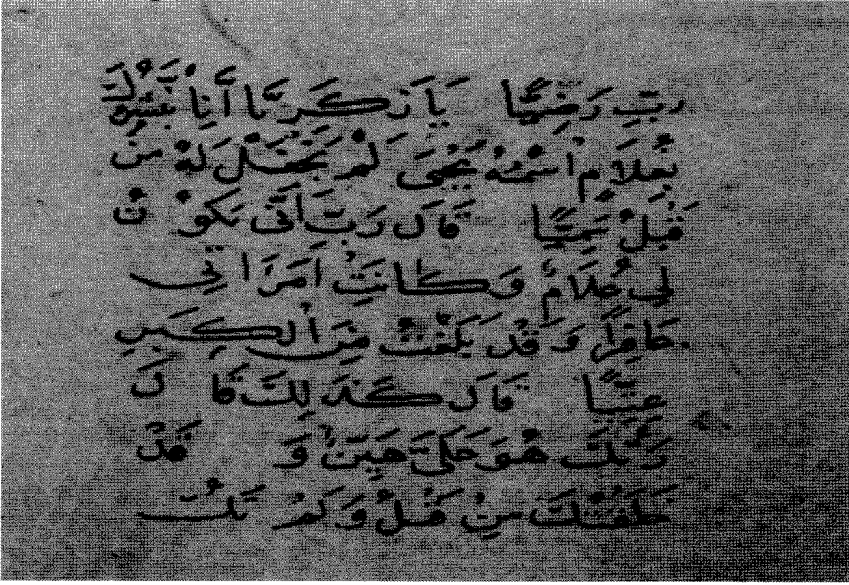 رَبِّ رَضِيًّا يَا زَكَرِيَّا أَنِا نُبَشِّرُكَ
بِغُلَامٍ اسْمُهُ يَحْيَى لَمْ نَجْعَلْ لَهُ مِنْ
قَبْلُ سَمِيًّا قَالَ رَبِّ أَنَّى يَكُونُ
لِي غُلَامٌ وَكَانَتِ امْرَأَتِي
عَاقِرًا وَقَدْ بَلَغْتُ مِنَ الْكِبَرِ
عِتِيًّا قَالَ كَذَلِكَ قَالَ
رَبُّكَ هُوَ عَلَيَّ هَيِّنٌ وَقَدْ
خَلَقْتُكَ مِنْ قَبْلُ وَلَمْ تَكُ